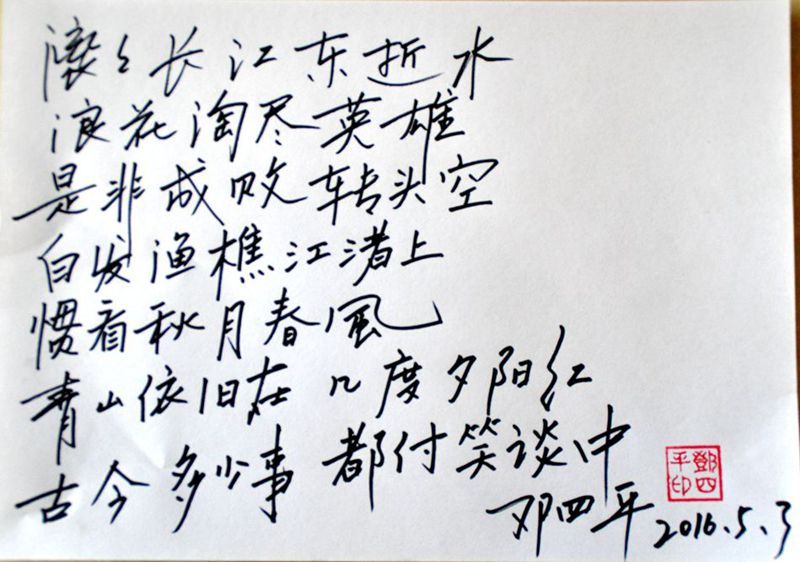 滚々长江东逝水
浪花淘尽英雄
是非成败转头空
白发渔樵江渚上
惯看秋月春風
青山依旧在 几度夕阳红
古今多少事 都付笑谈中
邓四平 2016.5.3
鄧四平印